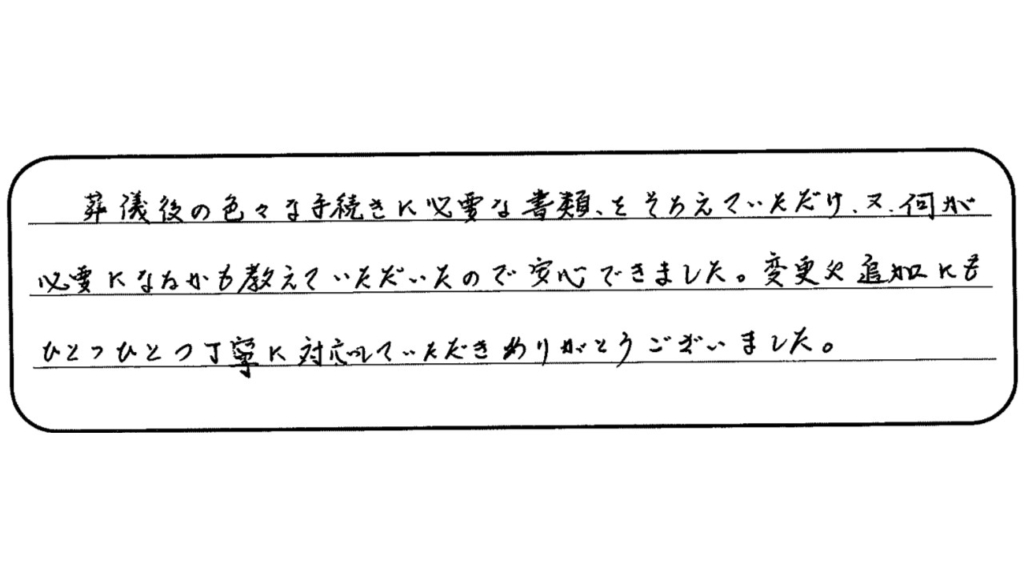 葬儀後の色々な手続きに必要な書類、をそろえていただけ、又、何が
必要になるかも教えていただいたので安心できました。変更や追加にも
ひとつひとつ丁寧に対応していただきありがとうございました。